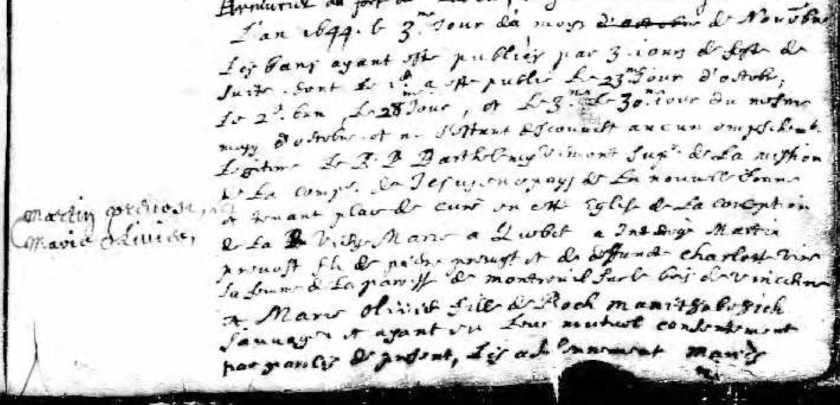 L'an 1644. le 3.me Jour du moys d'octobre de Novembre
Les bans ayant esté publiés par 3. iours de feste de
suite. dont le 1er a esté publié le 23me Jour d'octob,
le 2d. ban, le 28 Jour, et le 3me le 30me iour du mesme
moys d'octobre et ne s'estant descouvert aucun empeschemt.
Legitime Le R. P. Barthelemy Vimont supr. de La mission
de La Compe. de Jesus en ce pays de La nouvelle france
et tenant place de curé en cette Eglise de La conception
de La Vierge Marie a Quebec a
Martin prevost,
Marie Olivier,
Martin
prevost fils de pierre prevost et de deffuncte charlotte Vien
sa femme de La paroisse de montreuil sur le bois de Vincennes
et Marie Olivier fille de Roch manith8be8ich
sauvage et ayant eu Leur mutuel consentement
par paroles de present, Les a sollennement mariés